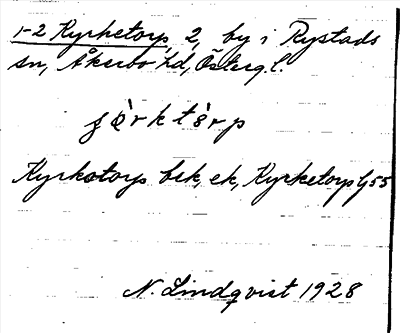 1-2 Kyrketorp 2, by i Rystads
sn, Åkerbo hd, Östergl.
Kyrkotorp bek, ek, Kyrketorp G55
N. Lindqvist 1928